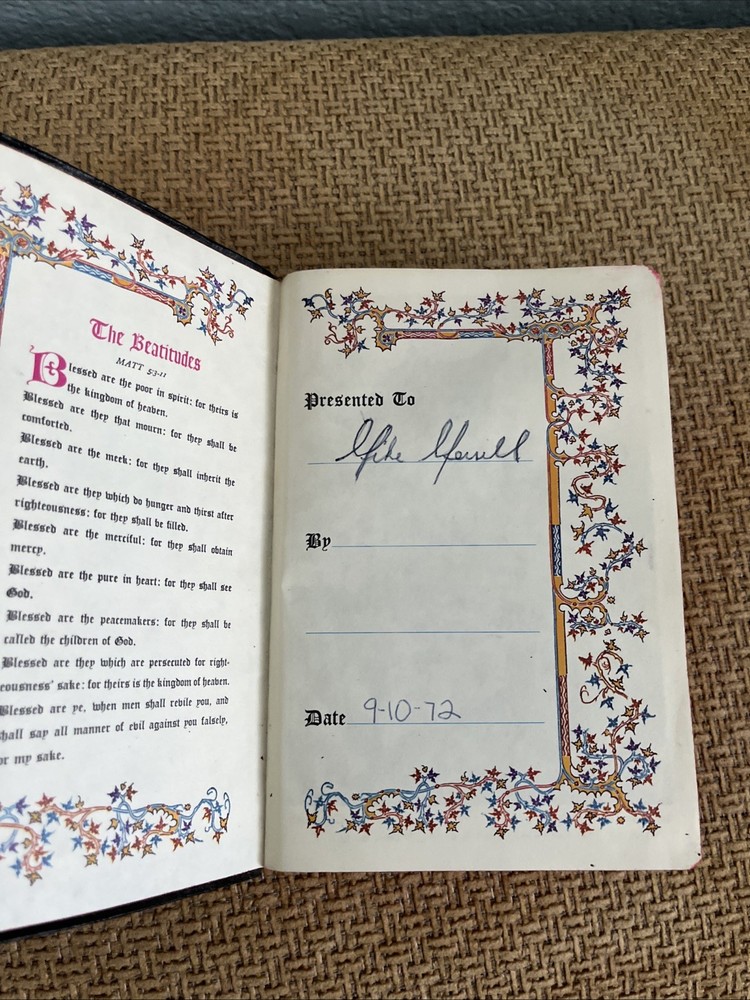 The Beatitudes
MATT 5:3-11
Blessed are the poor in spirit: for theirs is
the kingdom of heaven.
Blessed are they that mourn: for they shall be
comforted.
Blessed are the meek: for they shall inherit the
earth.
Blessed are they which do hunger and thirst after
righteousness: for they shall be filled.
Blessed are the merciful: for they shall obtain
mercy.
Blessed are the pure in heart: for they shall see
God.
Blessed are the peacemakers: for they shall be
called the children of God.
Blessed are they which are persecuted for right-
eousness' sake: for theirs is the kingdom of heaven.
Blessed are ye, when men shall revile you, and
shall say all manner of evil against you falsely,
for my sake.
Presented To
Mike Merrill
By
Date 9-10-72